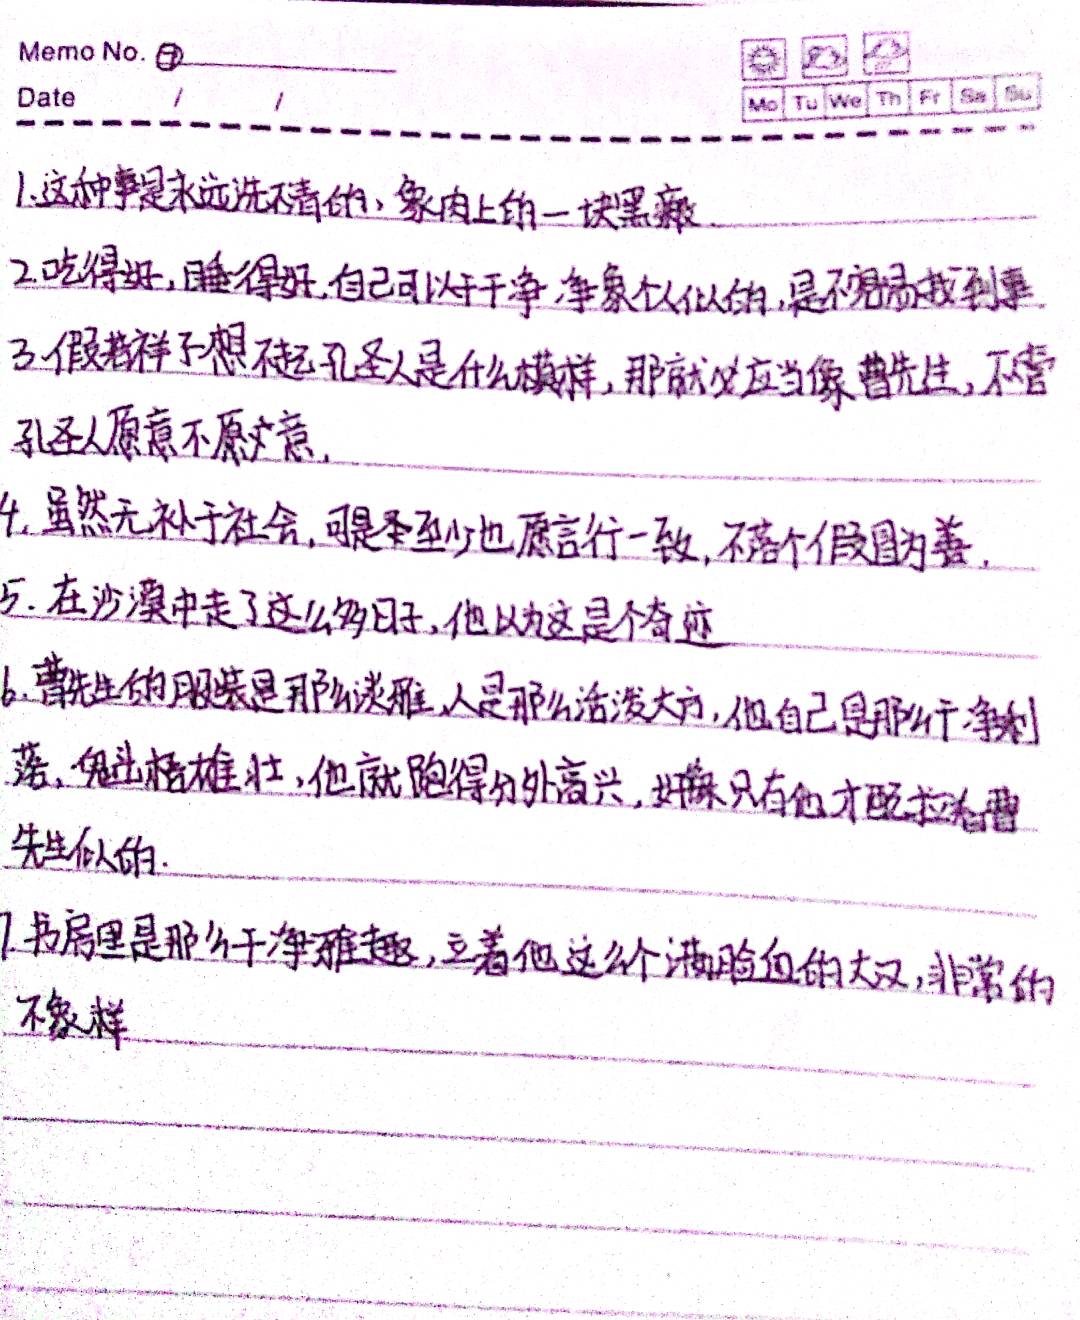 Memo No. ㊆
Date / /
Mo Tu We Th Fr Sa Su
1.这种事是永远洗不清的、象肉上的一块黑瘢.
2.吃得好,睡得好,自己可以干干净净象个人似的,是不容易找到事
3.假若祥子想不起孔圣人是什么模样,那就必应当像曹先生,不管
孔圣人愿意不愿意.
4.虽然无补于社会,可是至少也愿言行一致,不落个假冒为善.
5.在沙漠中走了这么多日子,他以为这是个奇迹
6.曹先生的服装是那么淡雅,人是那么活泼大方,他自己是那么干净利
落,魁梧雄壮,他就跑得分外高兴,好像只有他才配拉着曹
先生似的.
7.书房里是那么干净雅趣,立着他这么个满脸血的大汉,非常的
不象样